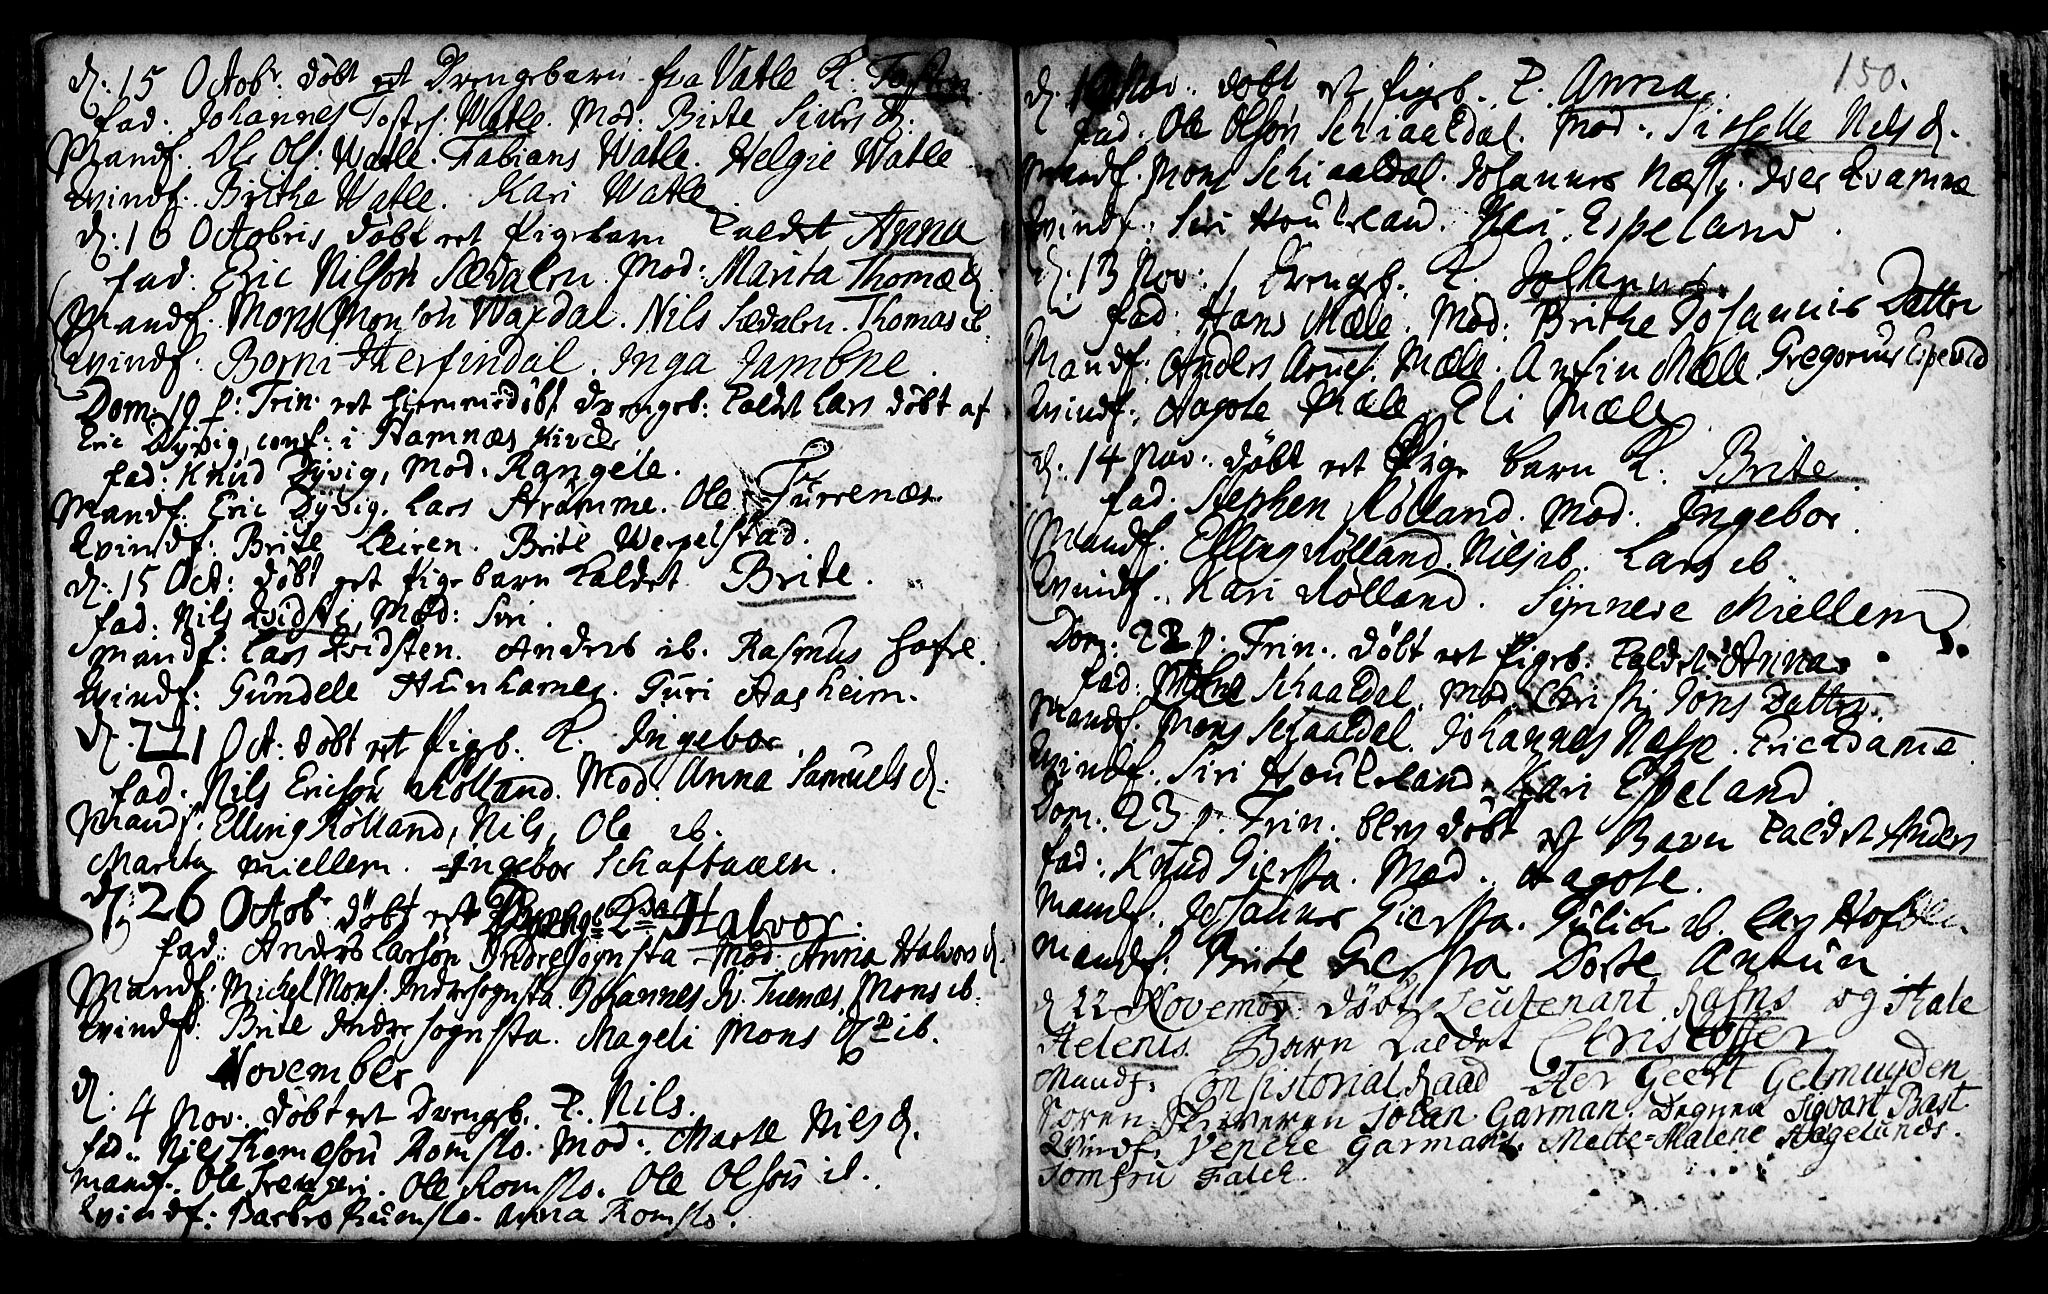 d: 15 Octobr døbt eet Drengebarn fra Vatle K. Tosten
fad: Johannes Tostens. Watle. Mod: Birte Siurs d:
Mandf. Ole Ols: Watle. Fabians Watle. Helgie Watle
Qvindf. Brithe Watle. Kari Watle
d: 16 Octobris døbt eet Pigebarn kaldet Anna
fad: Eric Nilsøn Sædalen. Mod: Marita Thomæ d.
Mandf. Mons Monsøn Waxdal. Nils Sædalen. Thomas ib
Qvindf: Borni Herfindal. Inga Jambne.
Dom: 19 p: Trin. eet hiemmedøbt Drengeb: kaldet Lars døbt af
Eric Dyvig, conf: i Stamnæs Kircke
fad: Knud Dyvig, Mod. Rangele.
Mandf. Eric Dyvig. Lars Stramme. Ole Furrenæs
Qvindf: Brite Leiren. Brite Werpelstad.
d: 15 Oct: døbt eet Pigebarn kaldet Brite.
fad: Nils Qvidste, Mod: Siri.
Mandf: Lars Qvidsten. Anders ib. Rasmus
Qvindf: Gundele Hunhamer. Guri Aasheim.
d. 21 Oct: døbt eet Pigeb. K. Ingebor
fad. Nils Ericsøn Rølland. Mod. Anna Samuels d.
Mandf. Elling Rølland, Nils, Ole ib.
Marita Miellem. Ingebor Schaftaaen.
d. 26 Octobr døbt eet Halvor.
fad: Anders Larsøn Indresognsta Mod. Anna Halvors d.
Mandf. Michel Mons. Indresognsta. Johannes Mons ib.
Qvindf: Brite Indresognsta. Mageli Mons ib.
November
d. 4 Nov. døbt eet Drengeb. K. Nils.
fad. Nils Romslo. Mod. Marte Nils d.
Mandf. Ole Ole Romslo. Ole Olsøn ib.
Qvindf: Barbro Anna Romslo.
150.
Nov. døbt et Pigeb. K. Anna
fad. Ole Olsøn Schiaaldal. Mod. Siselle Nils d.
Mandf. Mons Schiaaldal. Johannes
Qvindf. Siri Houkeland. Kari Espeland.
d. 13 Nov: 1 Drengeb. K. Johannes.
fad. Hans Mæle. Mod: Brithe Johannis Datter
Mandf: Anders Arnes. Mæle. Anfin Mæle. Gregorius
Qvindf. Aagote Mæle. Eli Mæle
d. 14 Nov. døbt eet Pige barn K. Brite
fad. Stephen Rølland. Mod. Ingebor.
Mandf. Elling Rølland. Nils ib. Lars ib
Qvindf. Kari Rølland. Synneve Miellem
Dom: 22 p: Trin. døbt eet Pigeb. kaldet Anna.
fad. Schaaldal. Mod. Christi Jons Datter.
Mandf. Mons Schaaldal. Johannes
Qvindf. Siri Houkeland. Kari Espeland
Dom: 23 p. Trin. blev døbt et Barn kaldet Anders
fad: Knud Giersta. Mod. Aagote.
Mandf. Johannes Giersta. ib. Lars
Mandf. Brite Giersta Dorte
d 22 November døbt Leutenant og
Helenis Barn kaldet Christoffer
Mandf. Consistorial Raad Her Geert Gelmuyden
Soren-Skriveren Johan Garman. Degnen Sigvart Bast.
Qvindf. Venche Garmans. Mette-Malene Hagelunds.
Jomfru Falch.